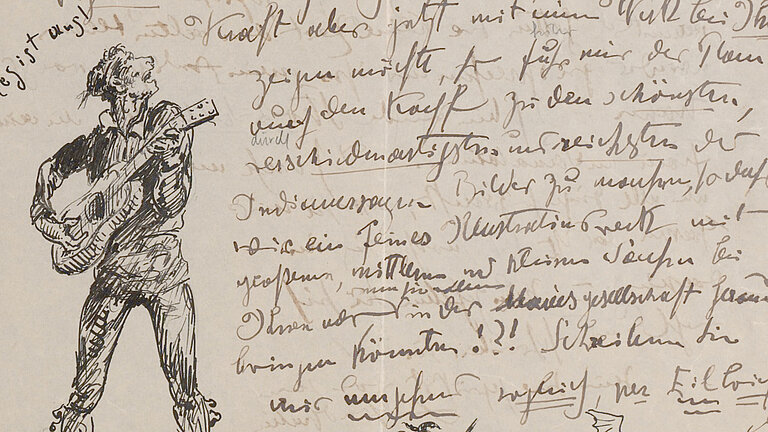 es ist aus!
Kraft aber jetzt mit einem Werk bei Ihnen
zeigen möchte so fuhr mir der Plan
führt
durch den Kopf zu den schönsten,
durch
verschiedenartigsten und reichsten der
Indianersagen Bilder zu machen, so daß
wir ein feines Illustrationswerk mit
großen, mittleren und kleinen Sachen bei
Ihnen oder in der gesellschaft
bringen könnten!?! Schreiben Sie
mir umgehend sogleich, per Eilbrief